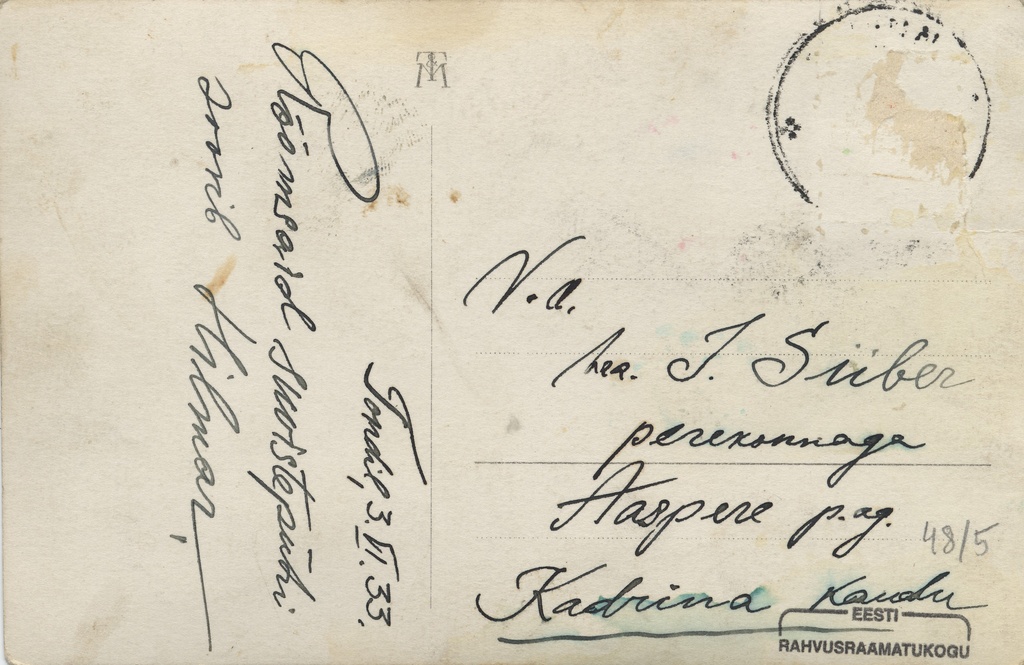 Tondil, 3. VI. 33.
Rõõmsaid suvistepühi
soovib Hilmar.
V. a.
hra. J. Süber
perekonnaga
Aaspere p. ag.
Kadrina kaudu
48/5
EESTI
RAHVUSRAAMATUKOGU